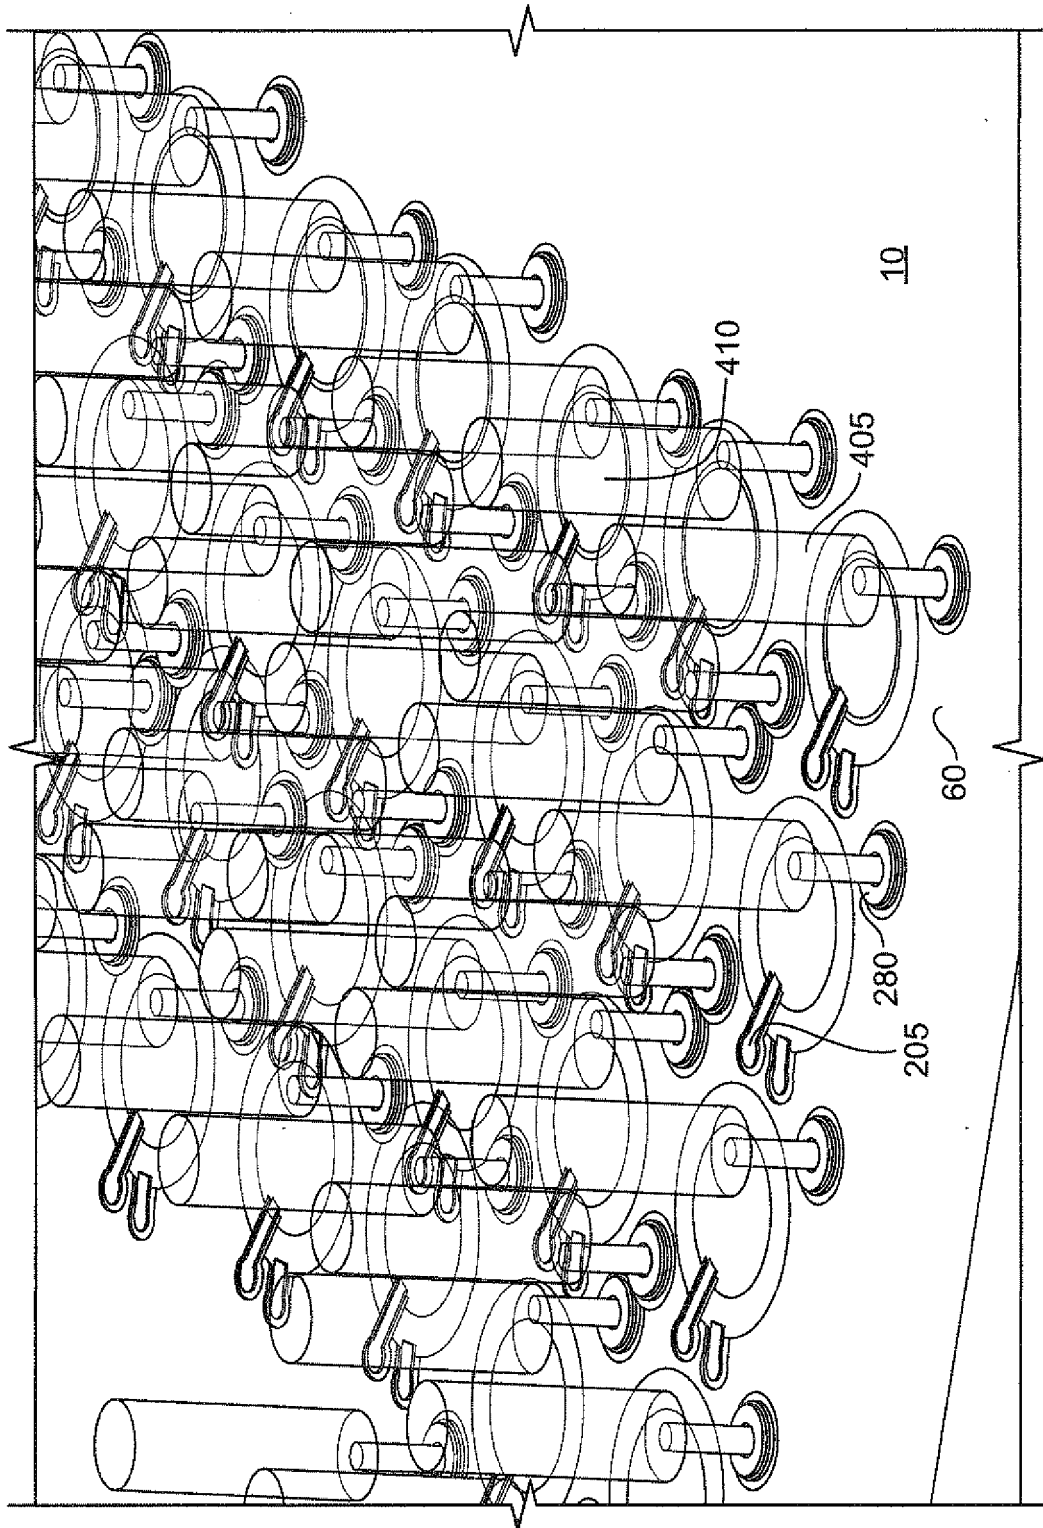 10
410
405
60
280
205